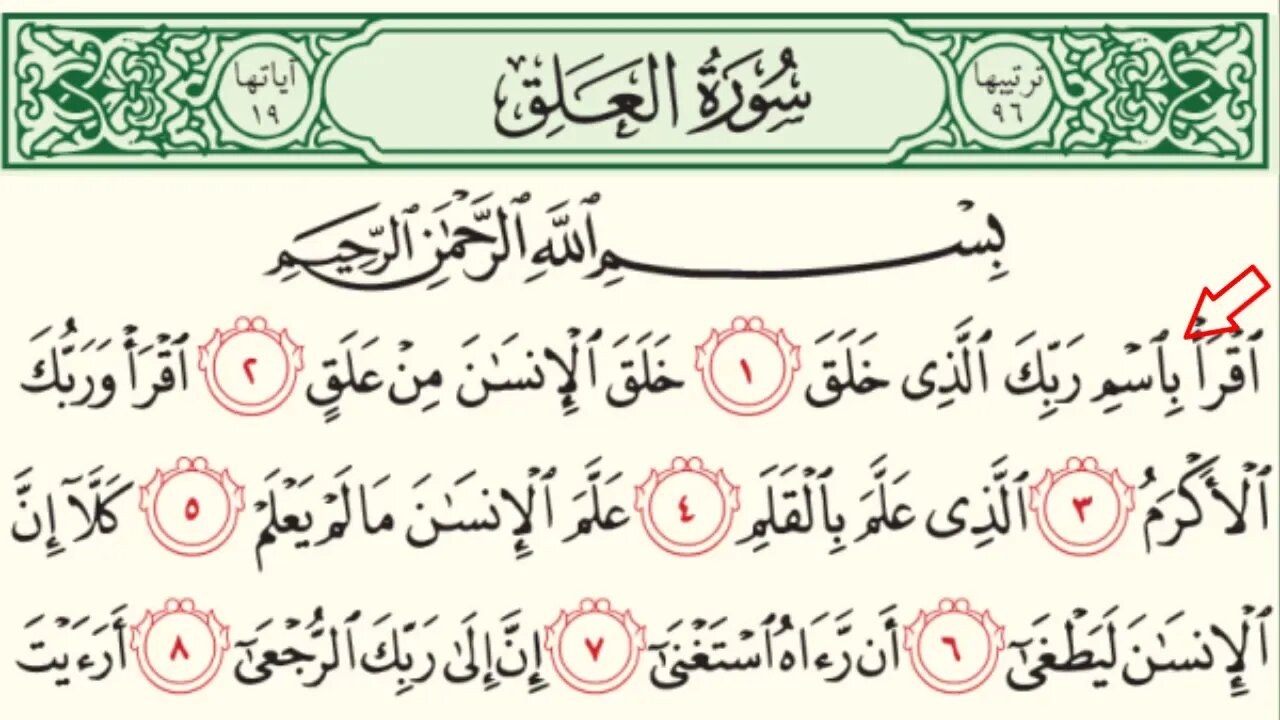 ترتيبها
٩٦
سُورَةُ العَلَقِ
آياتها
١٩
بِسْمِ ٱللَّهِ ٱلرَّحْمَٰنِ ٱلرَّحِيمِ
ٱقْرَأْ بِٱسْمِ رَبِّكَ ٱلَّذِى خَلَقَ ١ خَلَقَ ٱلْإِنسَٰنَ مِنْ عَلَقٍ ٢ ٱقْرَأْ وَرَبُّكَ
ٱلْأَكْرَمُ ٣ ٱلَّذِى عَلَّمَ بِٱلْقَلَمِ ٤ عَلَّمَ ٱلْإِنسَٰنَ مَا لَمْ يَعْلَمْ ٥ كَلَّآ إِنَّ
ٱلْإِنسَٰنَ لَيَطْغَىٰٓ ٦ أَن رَّءَاهُ ٱسْتَغْنَىٰٓ ٧ إِنَّ إِلَىٰ رَبِّكَ ٱلرُّجْعَىٰٓ ٨ أَرَءَيْتَ